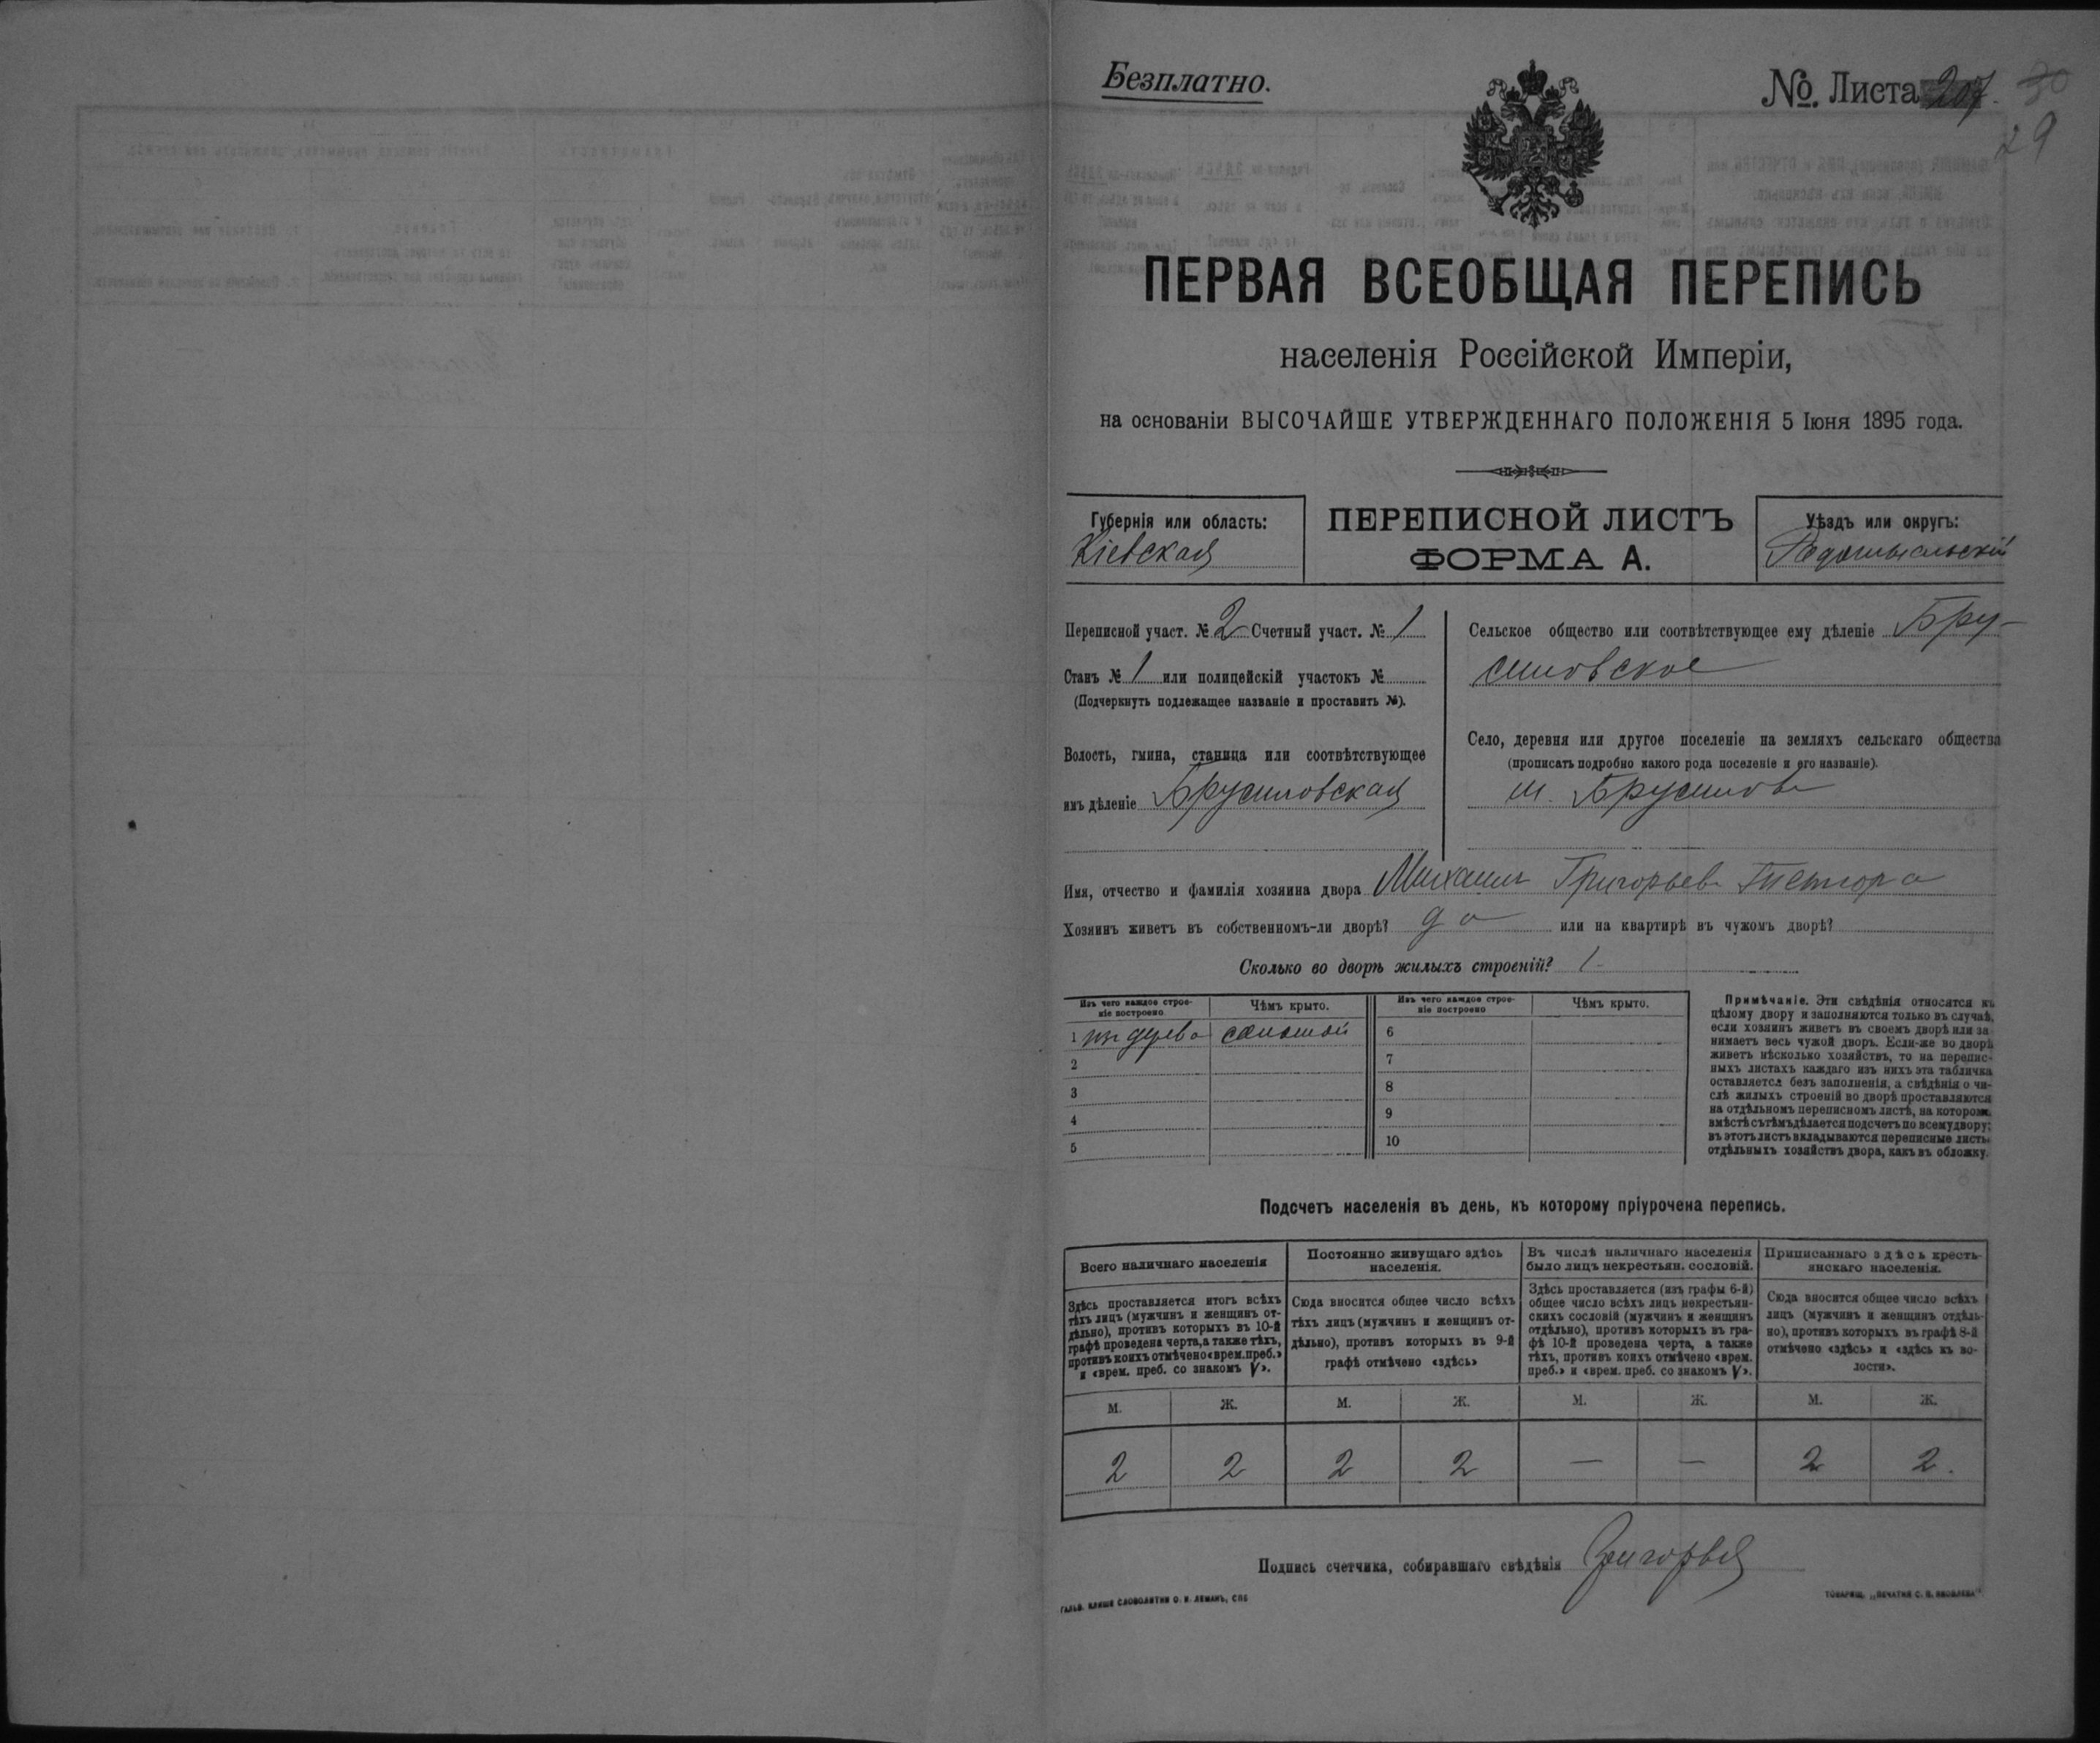 Безплатно.
№. Листа 207. 30
29
ПЕРВАЯ ВСЕОБЩАЯ ПЕРЕПИСЬ
населенія Россійской Имперіи,
на основаніи ВЫСОЧАЙШЕ УТВЕРЖДЕННАГО ПОЛОЖЕНІЯ 5 Іюня 1895 года.
Губернія или область:
Кіевская
ПЕРЕПИСНОЙ ЛИСТЪ
ФОРМА А.
Уѣздъ или округъ:
Радомысльскій
Переписной участ. № 2 Счетный участ. № 1
Станъ № 1 или полицейскій участокъ №
(Подчеркнуть подлежащее названіе и проставить №).
Волость, гмина, станица или соотвѣтствующее
имъ дѣленіе Брусиловская
Сельское общество или соотвѣтствующее ему дѣленіе Бру-
силовское
Село, деревня или другое поселеніе на земляхъ сельскаго общества
(прописать подробно какого рода поселеніе и его названіе).
м. Брусиловъ
Имя, отчество и фамилія хозяина двора Михаилъ Григорьевъ
Хозяинъ живетъ въ собственномъ-ли дворѣ? да или на квартирѣ въ чужомъ дворѣ?
Сколько во дворѣ жилыхъ строеній? 1
Изъ чего каждое строе-
ніе построено
Чѣмъ крыто.
Изъ чего каждое строе-
ніе построено
Чѣмъ крыто.
1 изъ дерева соломой 6
2 7
3 8
4 9
5 10
Примѣчаніе. Эти свѣдѣнія относятся къ
цѣлому двору и заполняются только въ случаѣ,
если хозяинъ живетъ въ своемъ дворѣ или за
нимаетъ весь чужой дворъ. Если-же во дворѣ
живетъ нѣсколько хозяйствъ, то на перепис-
ныхъ листахъ каждаго изъ нихъ эта табличка
оставляется безъ заполненія, а свѣдѣнія о чи-
слѣ жилыхъ строеній во дворѣ проставляются
на отдѣльномъ переписномъ листѣ, на которомъ
вмѣстѣ съ тѣмъ дѣлается подсчетъ по всему двору;
въ этотъ листъ вкладываются переписные листы
отдѣльныхъ хозяйствъ двора, какъ въ обложку.
Подсчетъ населенія въ день, къ которому пріурочена перепись.
Всего наличнаго населенія
Здѣсь проставляется итогъ всѣхъ
тѣхъ лицъ (мужчинъ и женщинъ от-
дѣльно), противъ которыхъ въ 10-й
графѣ проведена черта, а также тѣхъ,
противъ коихъ отмѣчено «врем. преб.»
и «врем. преб. со знакомъ V».
Постоянно живущаго здѣсь
населенія.
Сюда вносится общее число всѣхъ
тѣхъ лицъ (мужчинъ и женщинъ от-
дѣльно), противъ которыхъ въ 9-й
графѣ отмѣчено «здѣсь»
Въ числѣ наличнаго населенія
было лицъ некрестьян. сословій.
Здѣсь проставляется (изъ графы 6-й)
общее число всѣхъ лицъ некрестьян-
скихъ сословій (мужчинъ и женщинъ
отдѣльно), противъ которыхъ въ гра-
фѣ 10-й проведена черта, а также
тѣхъ, противъ коихъ отмѣчено «врем.
преб.» и «врем. преб. со знакомъ V».
Приписаннаго здѣсь кресть-
янскаго населенія.
Сюда вносится общее число всѣхъ
лицъ (мужчинъ и женщинъ отдѣль-
но), противъ которыхъ въ графѣ 8-й
отмѣчено «здѣсь» и «здѣсь къ во-
лости».
М. Ж. М. Ж. М. Ж. М. Ж.
2 2 2 2 — — 2 2.
Подпись счетчика, собиравшаго свѣдѣнія
ГАЛЬВ. КЛИШЕ СЛОВОЛИТНИ О. И. ЛЕМАНЪ, СПБ
ТОВАРИЩ. „ПЕЧАТНЯ С. П. ЯКОВЛЕВА"